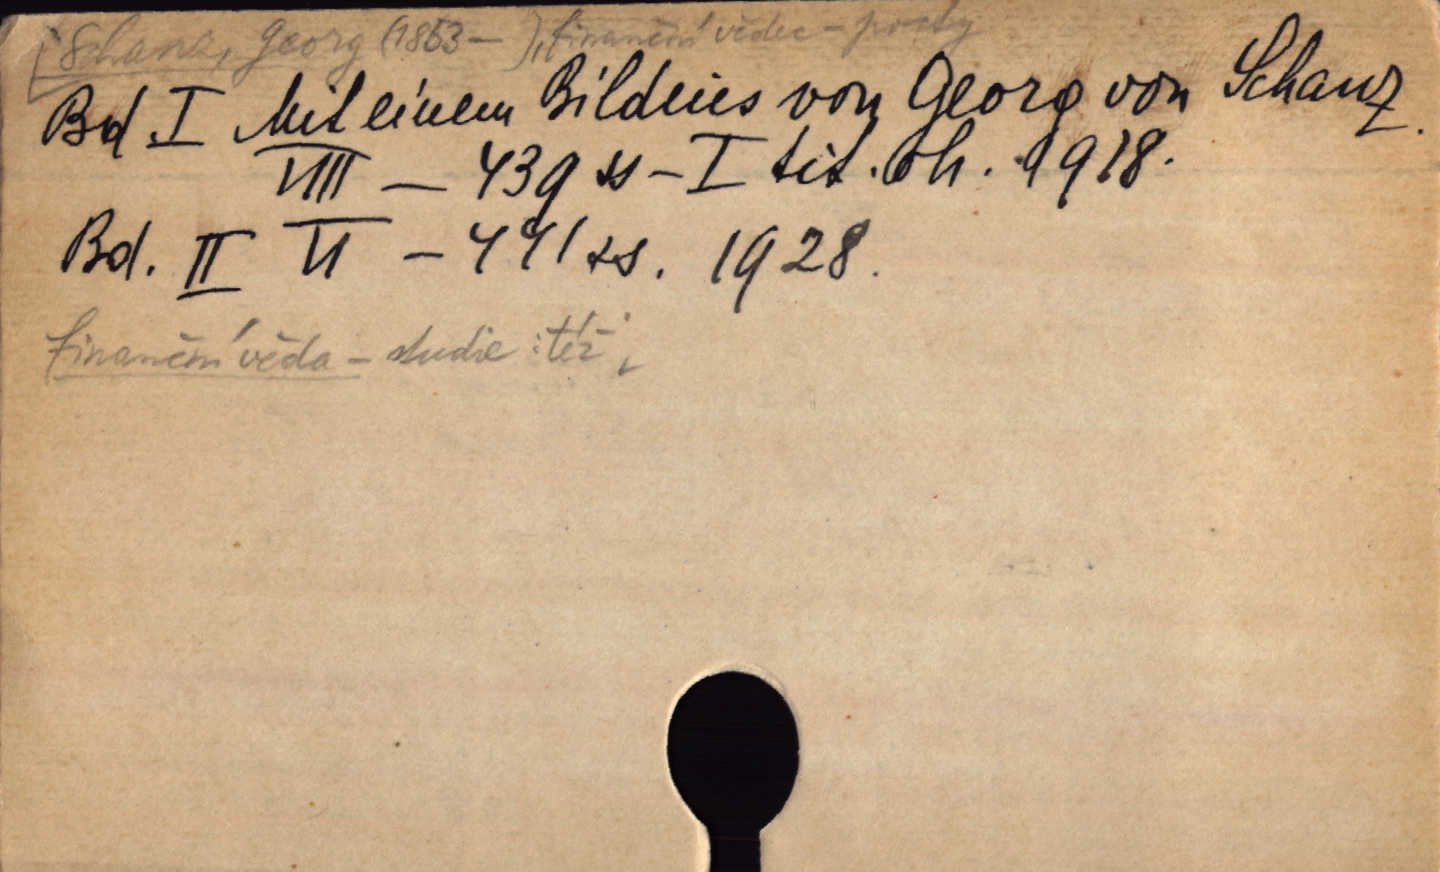 [Schanz, Georg (1853 – ), finanční vědec – pocty
Bd. I Mit einem Bildnis von Georg von Schanz.
VIII – 439 ss – I tit. Oh. 1918.
Bd. II VI – 441 ss. 1928.
finanční věda – studie též,